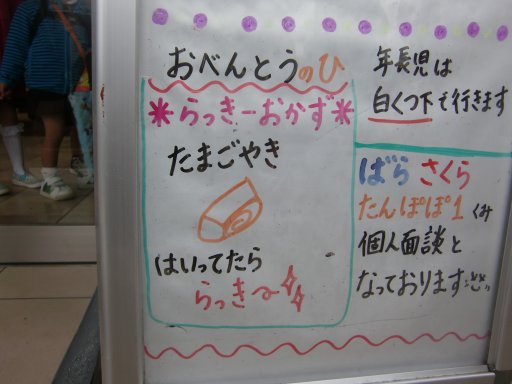 おべんとうのひ
*らっきーおかず*
たまごやき
はいってたら
らっき〜
年長児は
白くつ下で行きます
ばら さくら
たんぽぽ1くみ
個人面談と
なっております